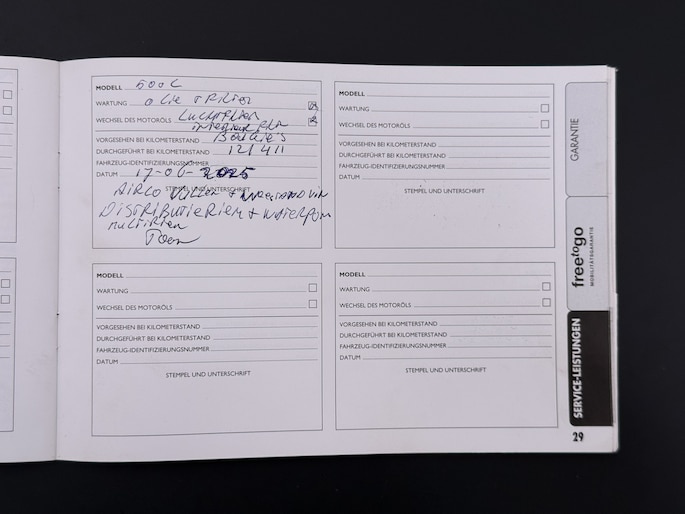 MODELL 500C
WARTUNG olie + Filter
WECHSEL DES MOTORÖLS Luchtfilter
interieur filter
VORGESEHEN BEI KILOMETERSTAND
DURCHGEFÜHRT BEI KILOMETERSTAND 121411
FAHRZEUG-IDENTIFIZIERUNGSNUMMER
DATUM 17-06-2025
STEMPEL UND UNTERSCHRIFT
AIRCO VULLEN +
DISTRIBUTIERIEM + WATERPOM
MULTIRIEM
MODELL
WARTUNG
WECHSEL DES MOTORÖLS
VORGESEHEN BEI KILOMETERSTAND
DURCHGEFÜHRT BEI KILOMETERSTAND
FAHRZEUG-IDENTIFIZIERUNGSNUMMER
DATUM
STEMPEL UND UNTERSCHRIFT
MODELL
WARTUNG
WECHSEL DES MOTORÖLS
VORGESEHEN BEI KILOMETERSTAND
DURCHGEFÜHRT BEI KILOMETERSTAND
FAHRZEUG-IDENTIFIZIERUNGSNUMMER
DATUM
STEMPEL UND UNTERSCHRIFT
MODELL
WARTUNG
WECHSEL DES MOTORÖLS
VORGESEHEN BEI KILOMETERSTAND
DURCHGEFÜHRT BEI KILOMETERSTAND
FAHRZEUG-IDENTIFIZIERUNGSNUMMER
DATUM
STEMPEL UND UNTERSCHRIFT
GARANTIE
freetogo
MOBILITÄTSGARANTIE
SERVICE-LEISTUNGEN
29